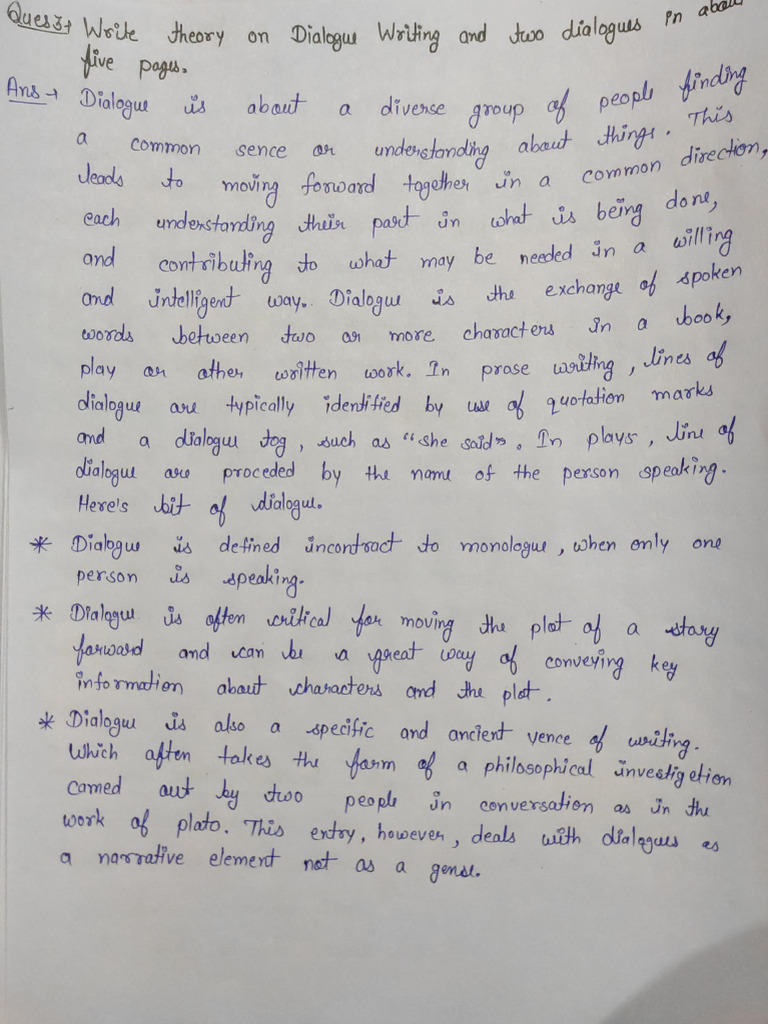 Ques 3→ Write theory on Dialogue Writing and two dialogues in about
five pages.
Ans→ Dialogue is about a diverse group of people finding
a common sence or understanding about things. This
leads to moving forward together in a common direction,
each understanding their part in what is being done,
and contributing to what may be needed in a willing
and intelligent way. Dialogue is the exchange of spoken
words between two or more characters in a book,
play or other written work. In prose writing, lines of
dialogue are typically identified by use of quotation marks
and a dialogue tog, such as "she said". In plays, line of
dialogue are proceded by the name of the person speaking.
Here's bit of dialogue.
* Dialogue is defined incontract to monologue, when only one
person is speaking.
* Dialogue is often critical for moving the plot of a story
forward and can be a great way of conveying key
information about characters and the plot.
* Dialogue is also a specific and ancient vence of writing.
Which often takes the form of a philosophical investigetion
camed out by two people in conversation as in the
work of plato. This entry, however, deals with dialogues as
a narrative element not as a gense.